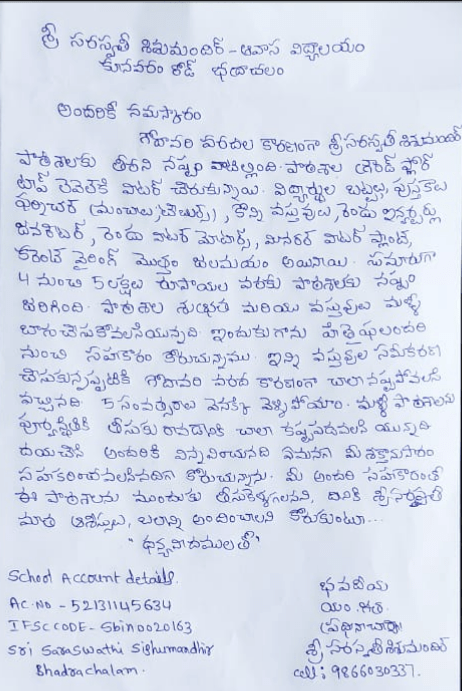 శ్రీ సరస్వతీ శిశుమందిర్ - ఆవాస విద్యాలయం
కూనవరం రోడ్ భద్రాచలం
అందరికీ నమస్కారం
గోదావరి వరదల కారణంగా శ్రీ సరస్వతీ శిశుమందిర్
పాఠశాలకు తీరని నష్టం వాటిల్లింది. పాఠశాల గ్రౌండ్ ఫ్లోర్
టాప్ లెవెల్‌కి వాటర్ చేరుకున్నాయి. విద్యార్థుల బట్టలు, పుస్తకాలు
ఫర్నిచర్ (మంచాలు, టేబుల్స్), కొన్ని వస్తువులు, రెండు ఇన్వర్టర్లు
జనరేటర్, రెండు వాటర్ మోటార్స్, మినరల్ వాటర్ ప్లాంట్,
కరెంట్ వైరింగ్ మొత్తం జలమయం అయినాయి. సుమారుగా
4 నుంచి 5 లక్షల రూపాయల వరకు పాఠశాలకు నష్టం
జరిగింది. పాఠశాల శుభ్రత మరియు వస్తువులు మళ్ళీ
బాగుచేసుకోవలసియున్నది. ఇందుకుగాను హితైషులందరి
నుంచి సహకారం కోరుచున్నాము. ఇన్ని వస్తువుల సమీకరణ
చేసుకున్నప్పటికీ గోదావరి వరద కారణంగా చాలా నష్టపోవలసి
వచ్చినది. 5 సంవత్సరాలు వెనక్కి వెళ్ళిపోయాం. మళ్లీ పాఠశాలను
పూర్వస్థితికి తీసుకు రావడానికి చాలా కష్టపడవలసి యున్నది
దయచేసి అందరికీ విన్నవించునది ఏమనగా మీ శక్త్యానుసారం
సహకరించవలసినదిగా కోరుచున్నాను. మీ అందరి సహకారంతో
ఈ పాఠశాలను ముందుకు తీసుకెళ్ళగలమని, దీనికి శ్రీ సరస్వతీ
మాత ఆశీస్సులు, బలాన్ని అందించాలని కోరుకుంటూ...
"ధన్యవాదములతో"
School Account details.
AC.No - 52131145634
IFSC CODE - Sbin0020163
Sri Saraswathi Sishumandhir
Bhadrachalam.
భవదీయ
ప్రధానాచార్య
శ్రీ సరస్వతీ శిశుమందిర్
cell: 9866030337.